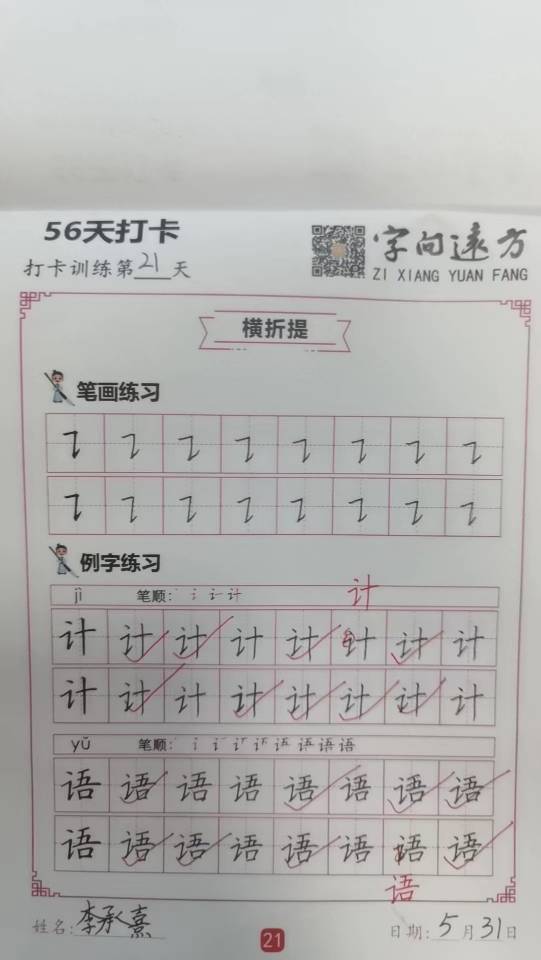 56天打卡
字向远方
打卡训练第21天
ZI XIANG YUAN FANG
横折提
笔画练习
例字练习
jì 笔顺: 计
计
计 计 计 计 计 计 计 计
计 计 计 计 计 计 计 计
yǔ 笔顺: 语
语 语 语 语 语 语 语 语
语 语 语 语 语 语 语 语
语
姓名: 李承熹
21
日期: 5月31日